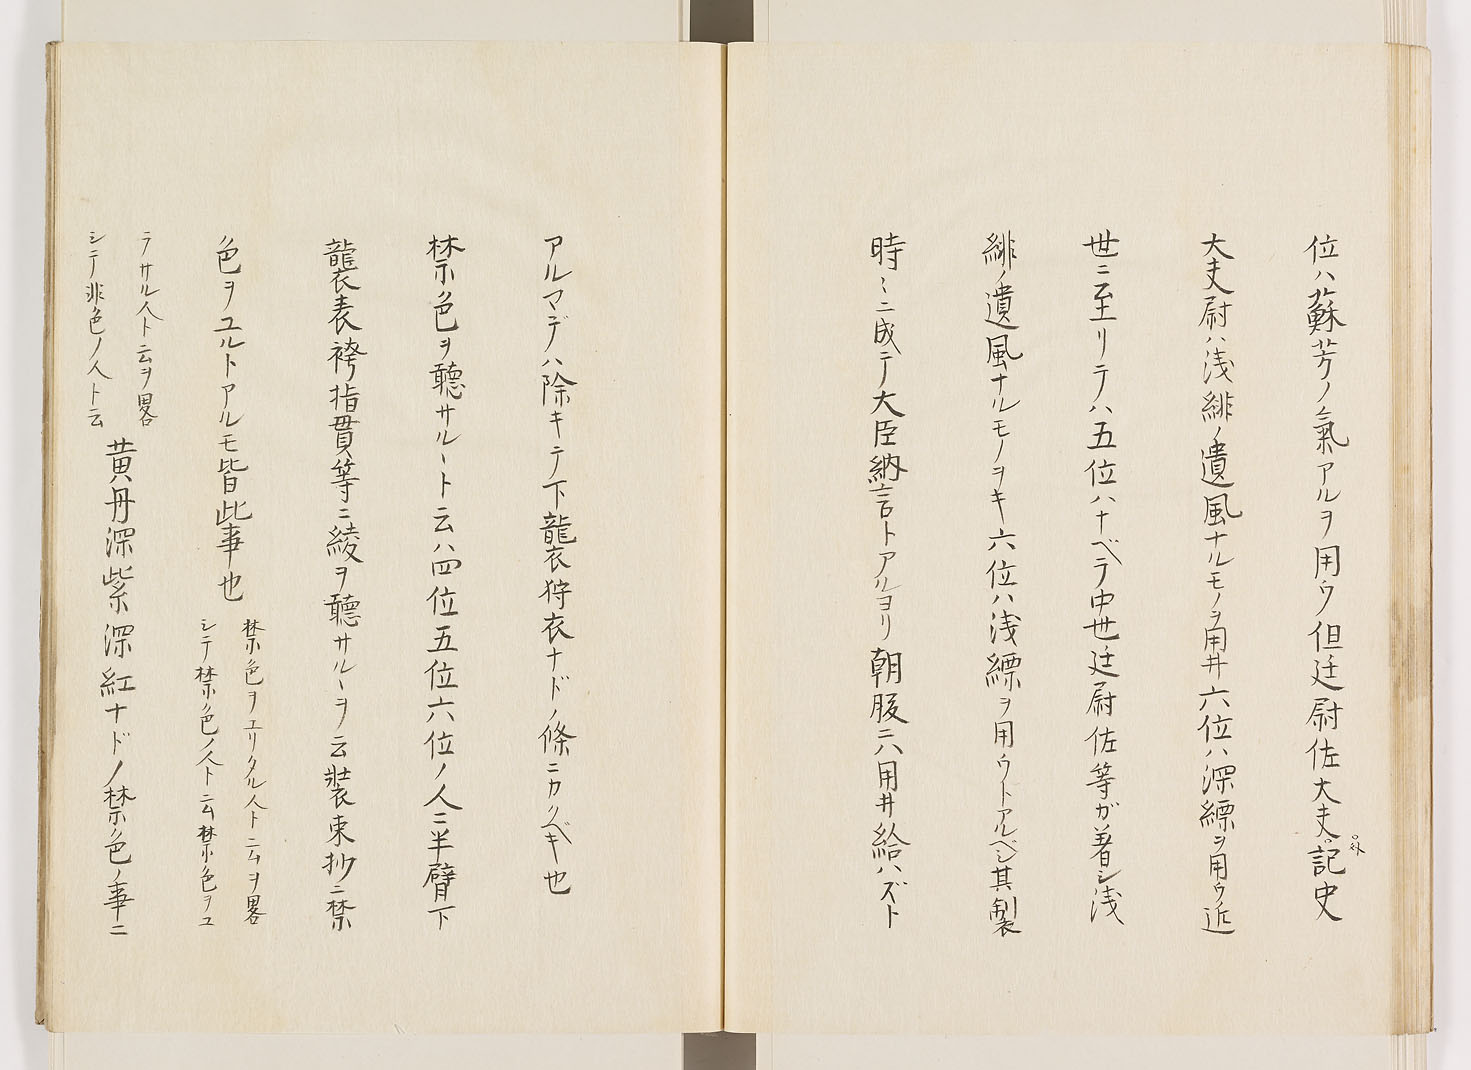 位ハ蘇芳ノ氣アルヲ用ウ但廷尉佐大夫外記史
大夫尉ハ浅緋ノ遺風ナルモノヲ用井六位ハ深縹ヲ用ウ近
世ニ至リテハ五位ハナベテ中世廷尉佐等ガ着シ浅
緋ノ遺風ナルモノヲキ六位ハ浅縹ヲ用ウトアルベシ其製
時〻ニ成テ大臣納言トアルヨリ朝服ニハ用井給ハズト
アルマデハ除キテ下襲狩衣ナドノ條ニカクベキ也
禁色ヲ聽サルヽト云ハ四位五位六位ノ人ニ半臂下
襲表袴指貫等ニ綾ヲ聽サルヽヲ云裝束抄ニ禁
色ヲユルトアルモ皆此事也
禁色ヲユリタル人ト云ヲ畧
シテ禁色ノ人ト云禁色ヲユ
ラサル人ト云ヲ畧
シテ非色ノ人ト云
黄丹深紫深紅ナドノ禁色ノ事ニ